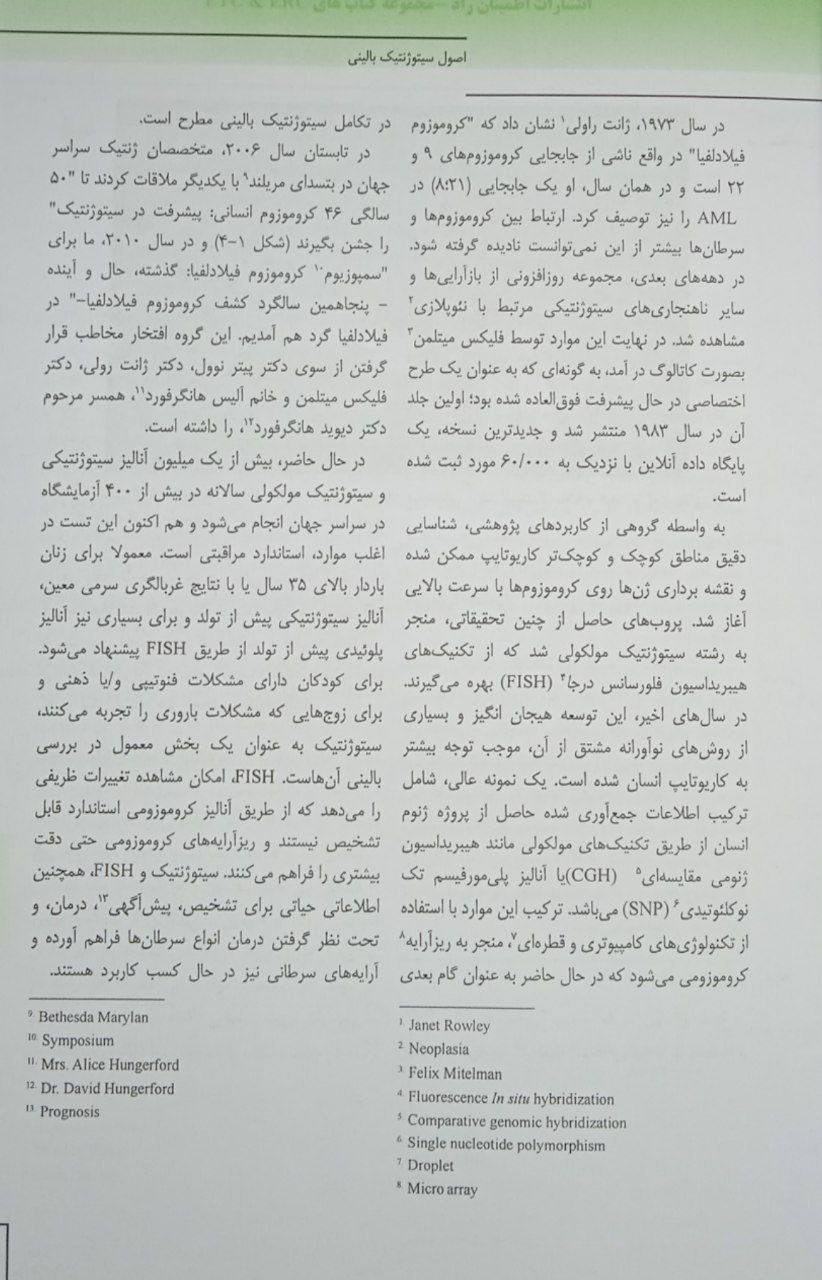 انتشارات اطمینان راد - مجموعه کتاب های ETC & ERC
اصول سیتوژنتیک بالینی
در سال ۱۹۷۳، ژانت راولی۱ نشان داد که "کروموزوم
فیلادلفیا" در واقع ناشی از جابجایی کروموزوم‌های ۹ و
۲۲ است و در همان سال، او یک جابجایی (۸;۲۱) در
AML را نیز توصیف کرد. ارتباط بین کروموزوم‌ها و
سرطان‌ها بیشتر از این نمی‌توانست نادیده گرفته شود.
در دهه‌های بعدی، مجموعه روزافزونی از بازآرایی‌ها و
سایر ناهنجاری‌های سیتوژنتیکی مرتبط با نئوپلازی۲
مشاهده شد. در نهایت این موارد توسط فلیکس میتلمن۳
بصورت کاتالوگ در آمد، به گونه‌ای که به عنوان یک طرح
اختصاصی در حال پیشرفت فوق‌العاده شده بود؛ اولین جلد
آن در سال ۱۹۸۳ منتشر شد و جدیدترین نسخه، یک
پایگاه داده آنلاین با نزدیک به ۶۰/۰۰۰ مورد ثبت شده
است.
به واسطه گروهی از کاربردهای پژوهشی، شناسایی
دقیق مناطق کوچک و کوچک‌تر کاریوتایپ ممکن شده
و نقشه برداری ژن‌ها روی کروموزوم‌ها با سرعت بالایی
آغاز شد. پروب‌های حاصل از چنین تحقیقاتی، منجر
به رشته سیتوژنتیک مولکولی شد که از تکنیک‌های
هیبریداسیون فلورسانس درجا۴ (FISH) بهره می‌گیرند.
در سال‌های اخیر، این توسعه هیجان انگیز و بسیاری
از روش‌های نوآورانه مشتق از آن، موجب توجه بیشتر
به کاریوتایپ انسان شده است. یک نمونه عالی، شامل
ترکیب اطلاعات جمع‌آوری شده حاصل از پروژه ژنوم
انسان از طریق تکنیک‌های مولکولی مانند هیبریداسیون
ژنومی مقایسه‌ای۵ (CGH)یا آنالیز پلی‌مورفیسم تک
نوکلئوتیدی۶ (SNP) می‌باشد. ترکیب این موارد با استفاده
از تکنولوژی‌های کامپیوتری و قطره‌ای۷، منجر به ریزآرایه۸
کروموزومی می‌شود که در حال حاضر به عنوان گام بعدی
1 Janet Rowley
2. Neoplasia
3. Felix Mitelman
4. Fluorescence In situ hybridization
5 Comparative genomic hybridization
6. Single nucleotide polymorphism
7. Droplet
8. Micro array
در تکامل سیتوژنتیک بالینی مطرح است.
در تابستان سال ۲۰۰۶، متخصصان ژنتیک سراسر
جهان در بتسدای مریلند۹ با یکدیگر ملاقات کردند تا "۵۰
سالگی ۴۶ کروموزوم انسانی: پیشرفت در سیتوژنتیک"
را جشن بگیرند (شکل ۱-۴) و در سال ۲۰۱۰، ما برای
"سمپوزیوم۱۰ کروموزوم فیلادلفیا: گذشته، حال و آینده
- پنجاهمین سالگرد کشف کروموزوم فیلادلفیا-" در
فیلادلفیا گرد هم آمدیم. این گروه افتخار مخاطب قرار
گرفتن از سوی دکتر پیتر نوول، دکتر ژانت رولی، دکتر
فلیکس میتلمن و خانم آلیس هانگرفورد۱۱، همسر مرحوم
دکتر دیوید هانگرفورد۱۲، را داشته است.
در حال حاضر، بیش از یک میلیون آنالیز سیتوژنتیکی
و سیتوژنتیک مولکولی سالانه در بیش از ۴۰۰ آزمایشگاه
در سراسر جهان انجام می‌شود و هم اکنون این تست در
اغلب موارد، استاندارد مراقبتی است. معمولا برای زنان
باردار بالای ۳۵ سال یا با نتایج غربالگری سرمی معین،
آنالیز سیتوژنتیکی پیش از تولد و برای بسیاری نیز آنالیز
پلوئیدی پیش از تولد از طریق FISH پیشنهاد می‌شود.
برای کودکان دارای مشکلات فنوتیپی و/یا ذهنی و
برای زوج‌هایی که مشکلات باروری را تجربه می‌کنند،
سیتوژنتیک به عنوان یک بخش معمول در بررسی
بالینی آن‌هاست. FISH، امکان مشاهده تغییرات ظریفی
را می‌دهد که از طریق آنالیز کروموزومی استاندارد قابل
تشخیص نیستند و ریزآرایه‌های کروموزومی حتی دقت
بیشتری را فراهم می‌کنند. سیتوژنتیک و FISH، همچنین
اطلاعاتی حیاتی برای تشخیص، پیش‌آگهی۱۳، درمان، و
تحت نظر گرفتن درمان انواع سرطان‌ها فراهم آورده و
آرایه‌های سرطانی نیز در حال کسب کاربرد هستند.
9. Bethesda Marylan
10. Symposium
11. Mrs. Alice Hungerford
12. Dr. David Hungerford
13. Prognosis